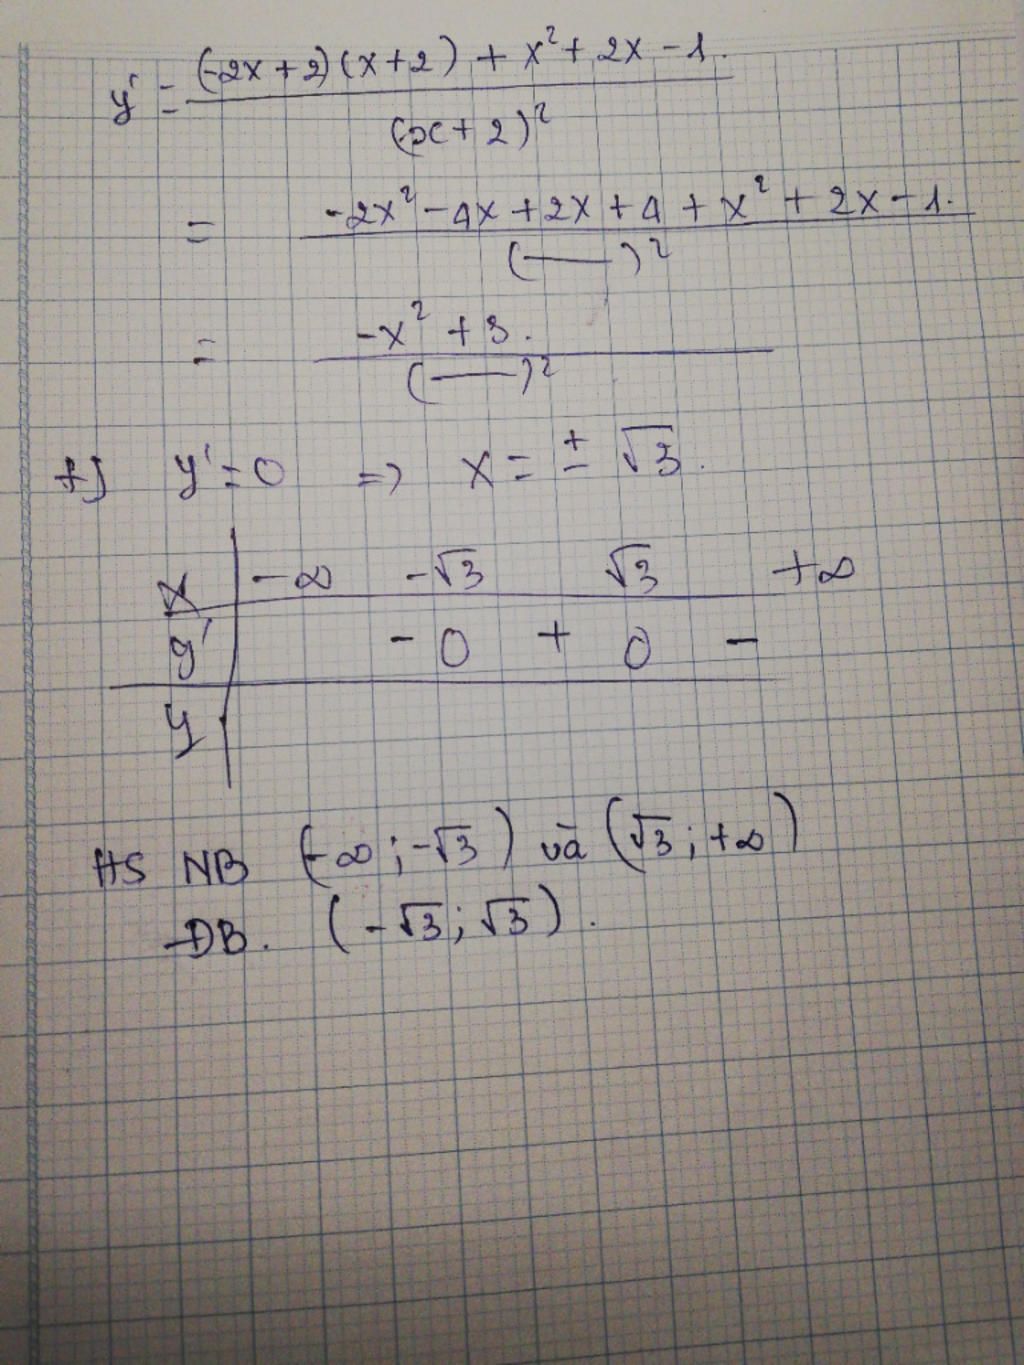 y' = (-2x+2)(x+2) + x² + 2x - 1.
(x+2)²
= -2x² - 4x + 2x + 4 + x² + 2x - 1.
(——)²
= -x² + 3.
(——)²
+) y' = 0 => x = ± √3.
x -∞ -√3 √3 +∞
y' - 0 + 0 -
y
HS NB (-∞; -√3) và (√3; +∞)
ĐB. (-√3; √3).